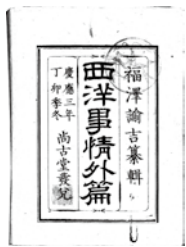 福澤諭吉纂輯
西洋事情外篇
慶應三年
丁卯季冬
尚古堂發兌